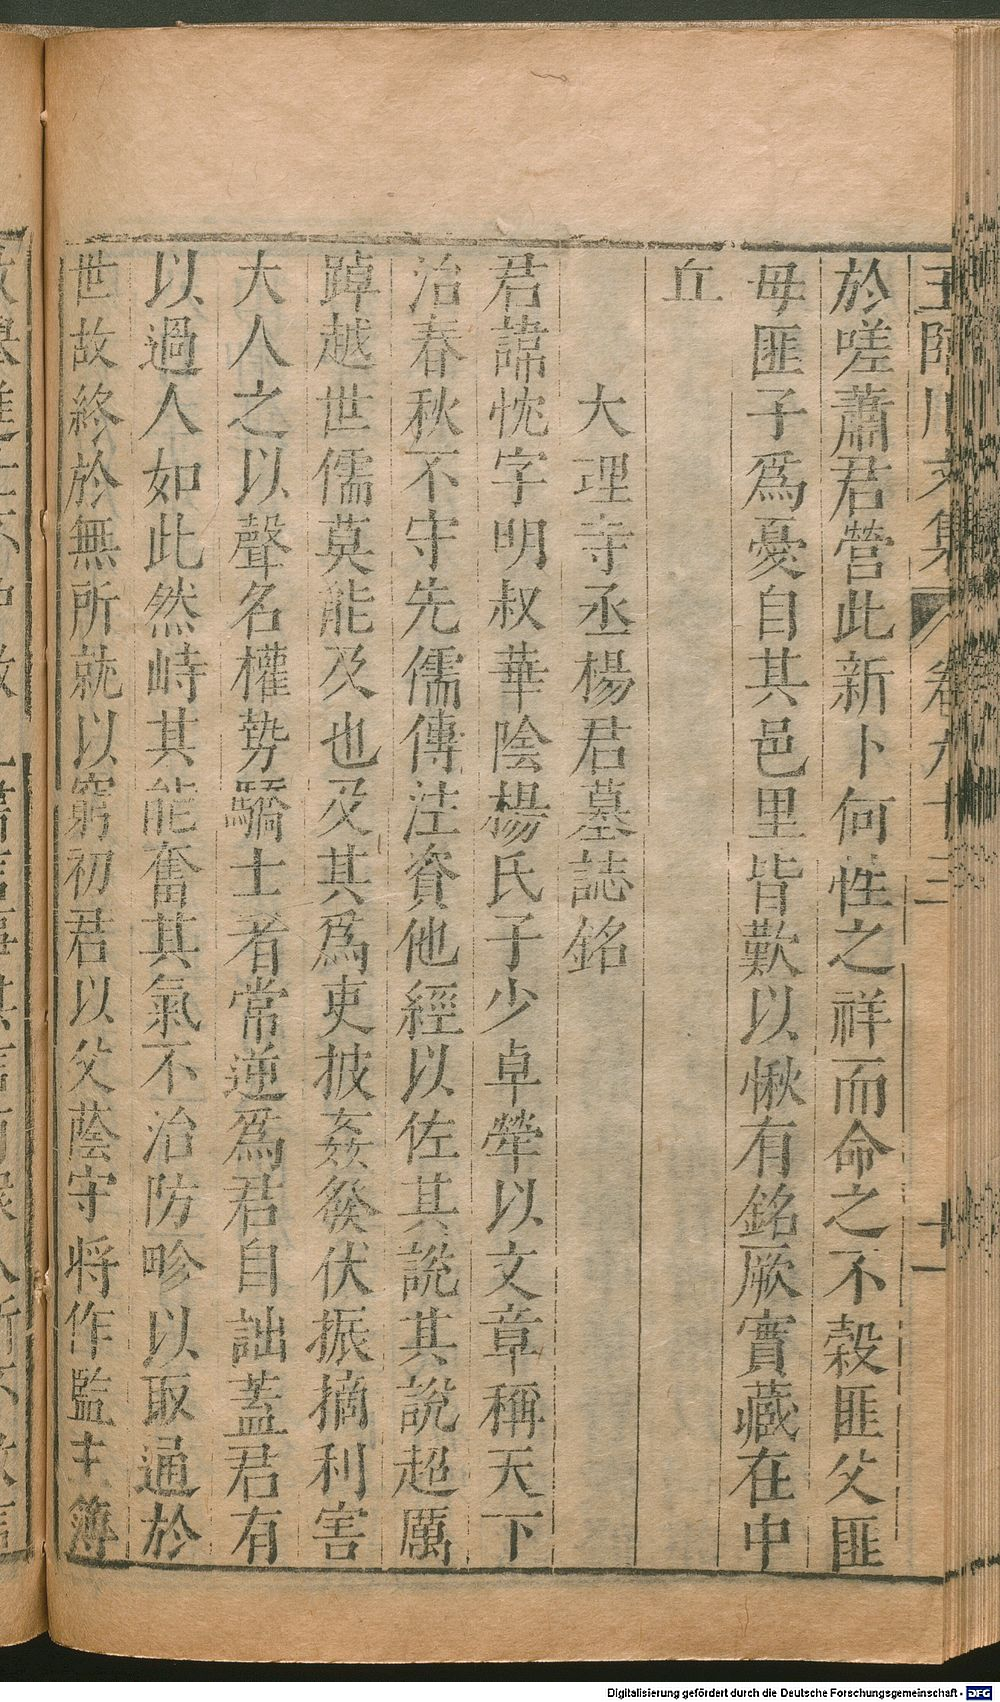 王臨川文集 卷九十三 十一
於嗟蕭君營此新卜何性之祥而命之不穀匪父匪
母匪子爲憂自其邑里皆歎以愀有銘厥實藏在中
丘
大理寺丞楊君墓誌銘
君諱忱字明叔華陰楊氏子少卓犖以文章稱天下
治春秋不守先儒傳注資他經以佐其說其說超厲
踔越世儒莫能及也及其爲吏披姦發伏振擿利害
大人之以聲名權勢驕士者常逆爲君自詘蓋君有
以過人如此然峙其能奮其氣不治防畛以取通於
世故終於無所就以窮初君以父蔭守將作監主簿
Digitalisierung gefördert durch die Deutsche Forschungsgemeinschaft - DFG